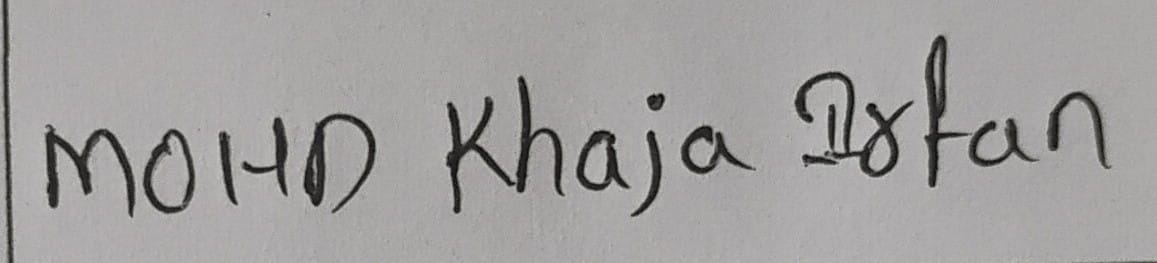 MOHD Khaja Irfan